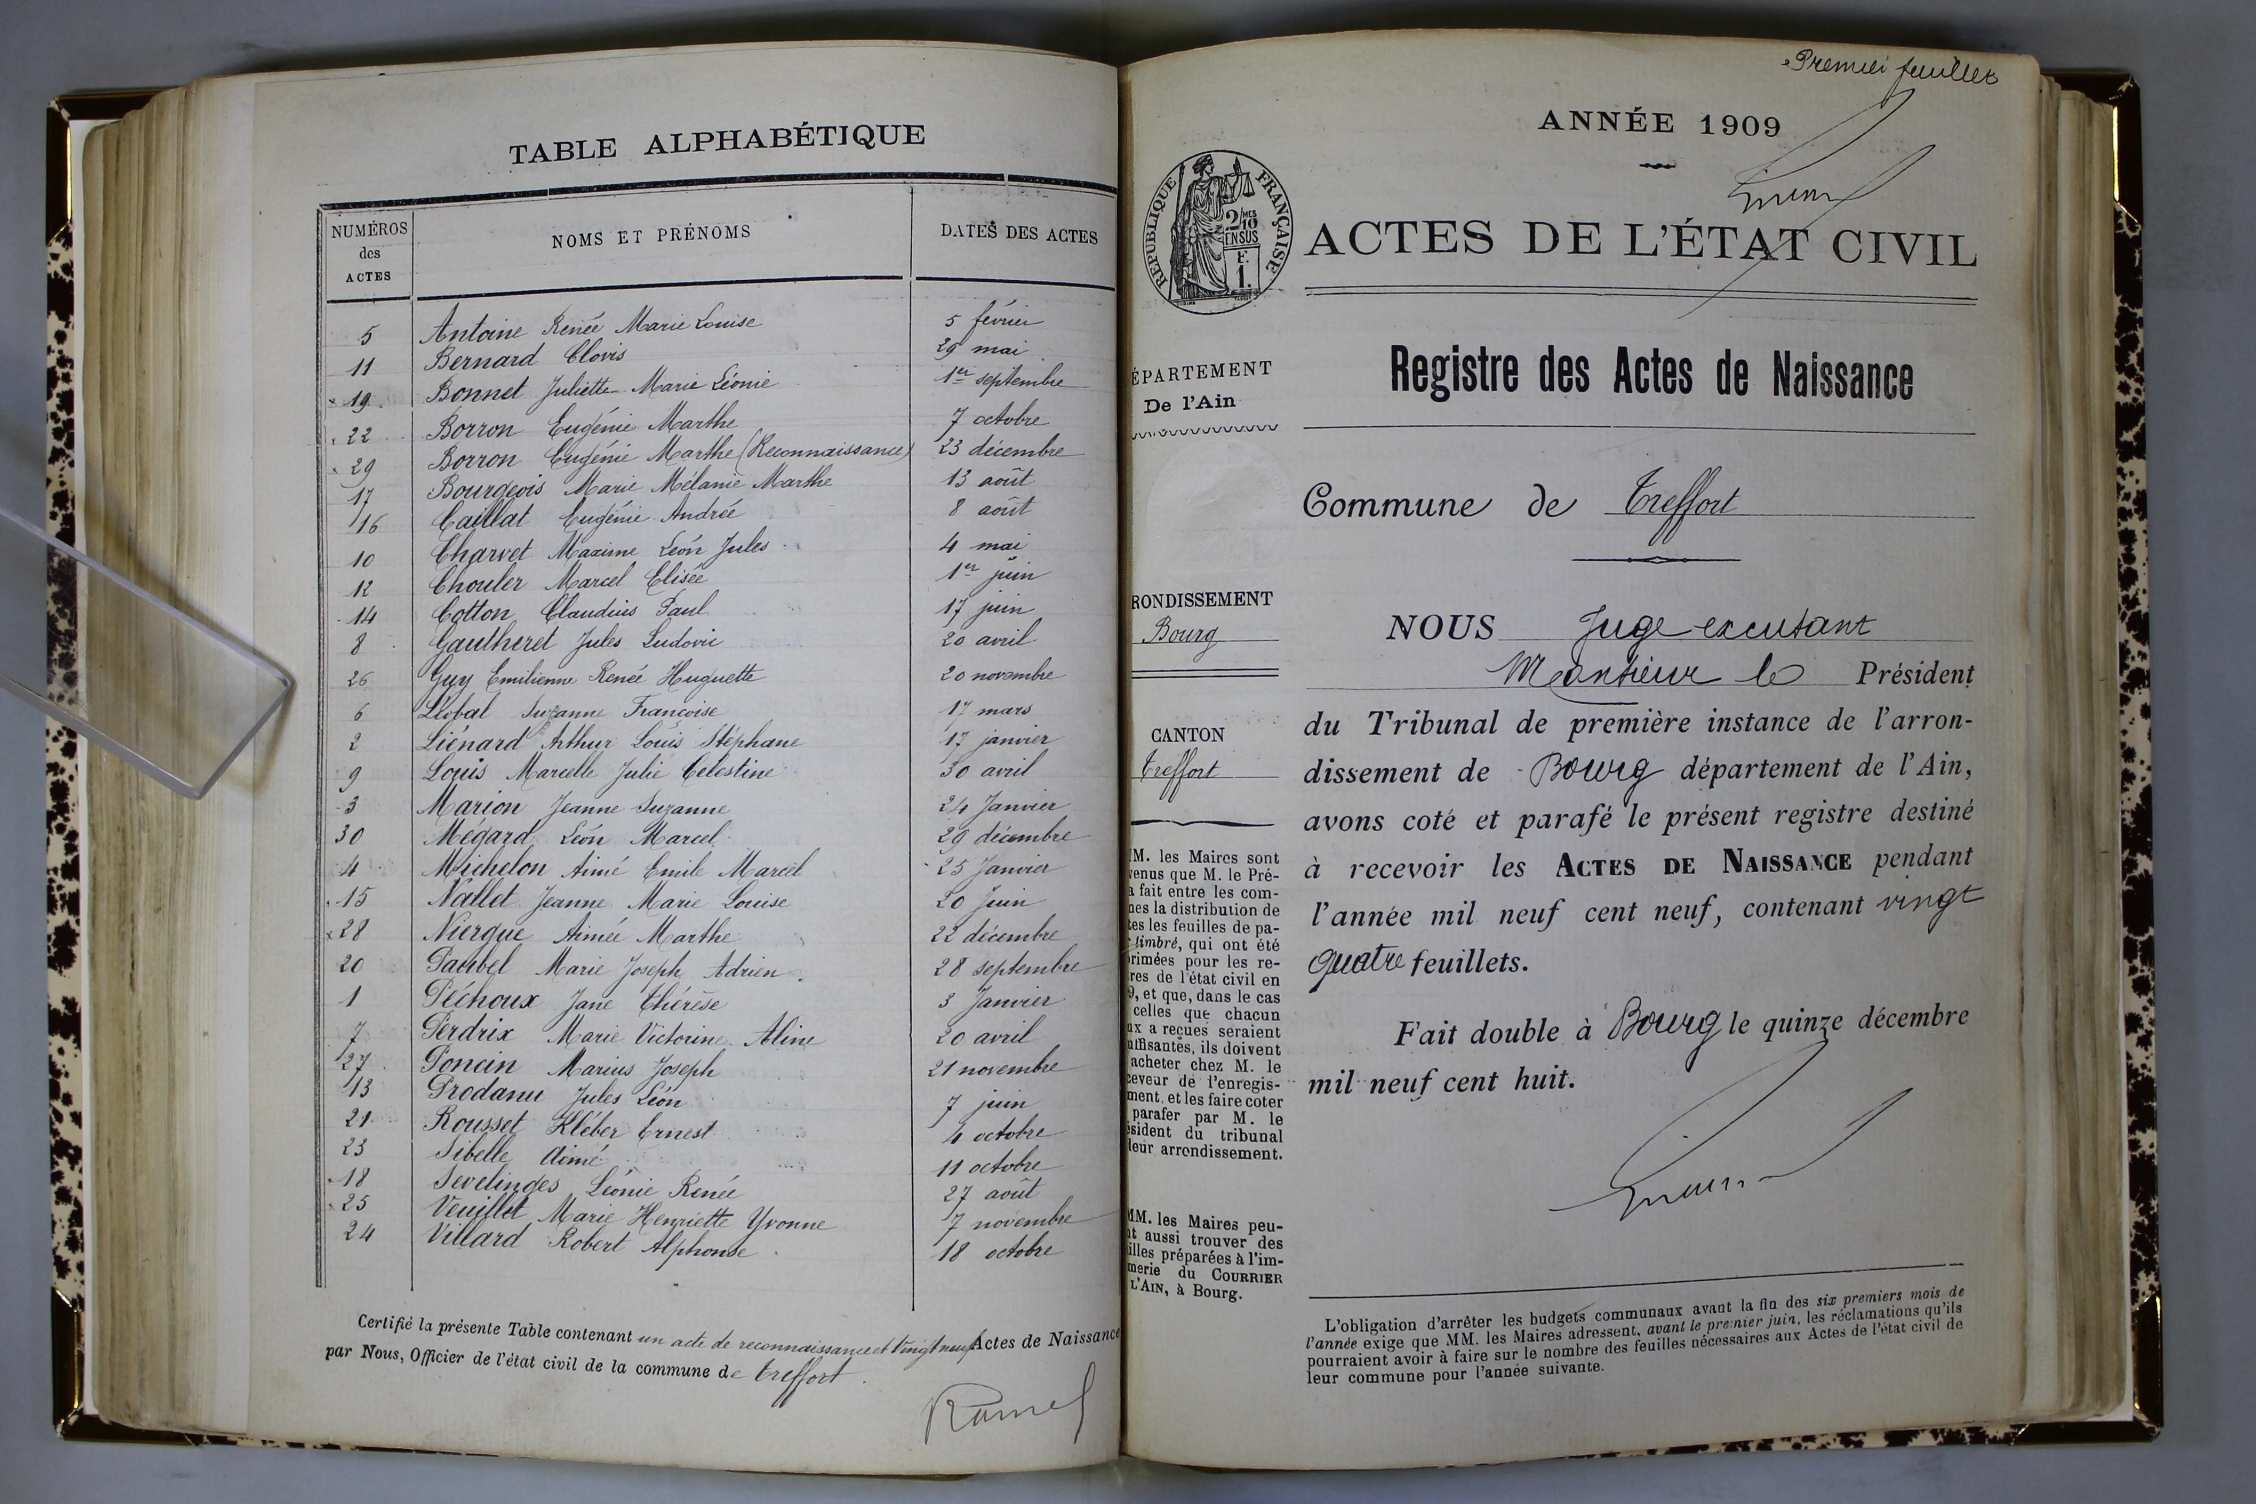 TABLE ALPHABÉTIQUE
NUMÉROS des ACTES NOMS ET PRÉNOMS DATES DES ACTES
5 Antoine Renée Marie Louise 5 février
11 Bernard Clovis 29 mai
19 Bonnet Juliette Marie Léonie 1er septembre
22 Borron Eugénie Marthe 7 octobre
29 Borron Eugénie Marthe (Reconnaissance) 23 décembre
17 Bourgeois Marie Mélanie Marthe 13 août
16 Caillat Eugénie Andrée 8 août
10 Charvet Maxime Léon Jules 4 mai
12 Chouler Marcel Elisée 1er juin
14 Cotton Claudius Paul 17 juin
8 Gautheret Jules Ludovic 20 avril
26 Guy Emilienne Renée Huguette 20 novembre
6 Llobal Suzanne Françoise 17 mars
2 Liénard Arthur Louis Stéphane 17 janvier
9 Louis Marcelle Julie Celestine 30 avril
3 Marion Jeanne Suzanne 24 Janvier
30 Mégard Léon Marcel 29 décembre
4 Michelon Aimé Emile Marcel 25 Janvier
15 Nallet Jeanne Marie Louise 20 Juin
28 Niergue Aimée Marthe 22 décembre
20 Paubel Marie Joseph Adrien 28 septembre
1 Péchoux Jane Thérèse 3 Janvier
7 Perdrix Marie Victorine Aline 20 avril
27 Poncin Marius Joseph 21 novembre
13 Prodanu Jules Léon 7 juin
21 Rousset Kléber Ernest 4 octobre
23 Sibelle Aimé 11 octobre
18 Sevelinges Léonie Renée 27 août
25 Veuillet Marie Henriette Yvonne 7 novembre
24 Villard Robert Alphonse 18 octobre
Certifié la présente Table contenant un acte de reconnaissance et vingt neuf Actes de Naissance
par Nous, Officier de l'état civil de la commune de Treffort.
Premier feuillet
ANNÉE 1909
RÉPUBLIQUE FRANÇAISE
2/10 MES
EN SUS
F.
1.
ACTES DE L'ÉTAT CIVIL
Registre des Actes de Naissance
ÉPARTEMENT
De l'Ain
RONDISSEMENT
Bourg
CANTON
Treffort
M. les Maires sont
venus que M. le Pré-
a fait entre les com-
nes la distribution de
tes les feuilles de pa-
timbré, qui ont été
rimées pour les re-
res de l'état civil en
9, et que, dans le cas
celles que chacun
ux a reçues seraient
uffisantes, ils doivent
acheter chez M. le
ceveur de l'enregis-
ment, et les faire coter
parafer par M. le
ésident du tribunal
leur arrondissement.
MM. les Maires peu-
nt aussi trouver des
illes préparées à l'im-
merie du COURRIER
L'AIN, à Bourg.
Commune de Treffort
NOUS Juge excusant
Monsieur le Président
du Tribunal de première instance de l'arron-
dissement de Bourg département de l'Ain,
avons coté et parafé le présent registre destiné
à recevoir les ACTES DE NAISSANCE pendant
l'année mil neuf cent neuf, contenant vingt
quatre feuillets.
Fait double à Bourg le quinze décembre
mil neuf cent huit.
L'obligation d'arrêter les budgets communaux avant la fin des six premiers mois de
l'année exige que MM. les Maires adressent, avant le premier juin, les réclamations qu'ils
pourraient avoir à faire sur le nombre des feuilles nécessaires aux Actes de l'état civil de
leur commune pour l'année suivante.